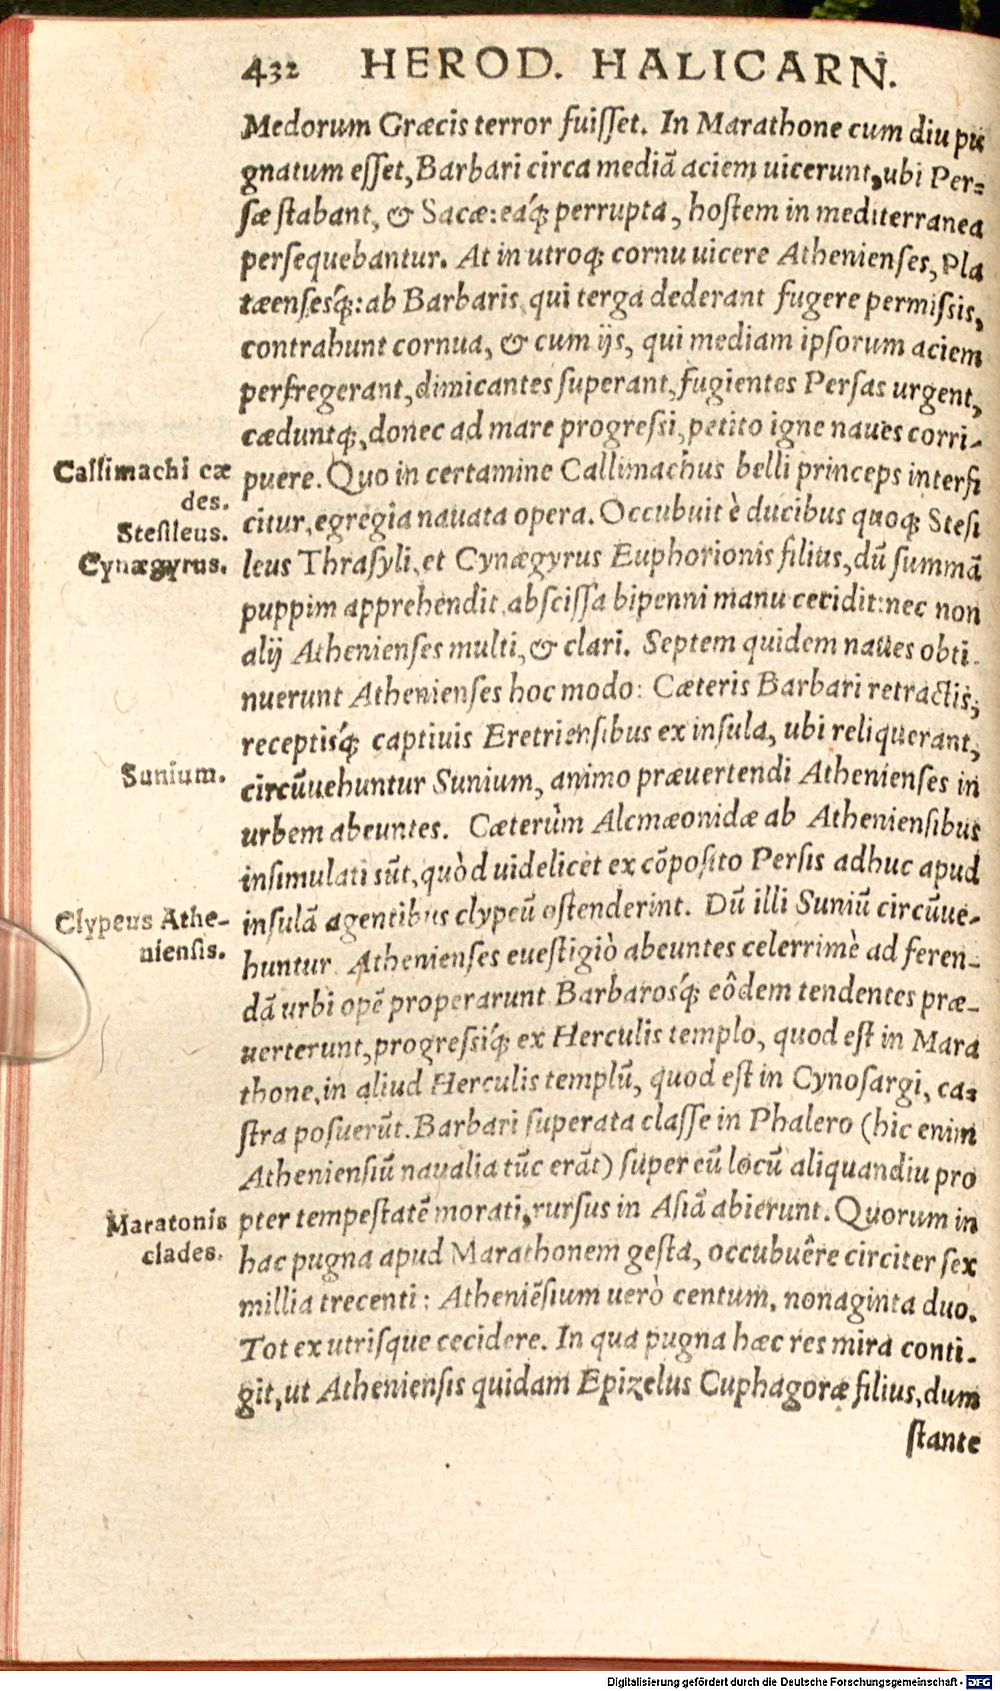 432 HEROD. HALICARN.
Medorum Græcis terror fuiſſet. In Marathone cum diu pu
gnatum eſſet, Barbari circa mediã aciem uicerunt, ubi Per-
ſæ ſtabant, & Sacæ: eáq́; perrupta, hoſtem in mediterranea
perſequebantur. At in utroq; cornu uicere Athenienſes, Pla
tæenſesq́;: ab Barbaris, qui terga dederant fugere permiſsis,
contrahunt cornua, & cum ijs, qui mediam ipſorum aciem
perfregerant, dimicantes ſuperant, fugientes Perſas urgent,
cæduntq́;, donec ad mare progreſsi, petito igne naues corri-
Callimachi cæ
des.
puere. Quo in certamine Callimachus belli princeps interfi
Steſileus.
citur, egregia nauata opera. Occubuit è ducibus quoq; Steſi
Cynægyrus.
leus Thraſyli, et Cynægyrus Euphorionis filius, dũ ſummã
puppim apprehendit, abſciſſa bipenni manu cecidit: nec non
alij Athenienſes multi, & clari. Septem quidem naues obti-
nuerunt Athenienſes hoc modo: Cæteris Barbari retractis,
receptisq́; captiuis Eretrienſibus ex inſula, ubi reliquerant,
Sunium.
circũuehuntur Sunium, animo præuertendi Athenienſes in
urbem abeuntes. Cæterùm Alcmæonidæ ab Athenienſibus
inſimulati sũt, quòd uidelicet ex cõpoſito Perſis adhuc apud
Clypeus Athe-
nienſis.
inſulã agentibus clypeũ oſtenderint. Dũ illi Suniũ circũue-
huntur, Athenienſes eueſtigiò abeuntes celerrimè ad feren-
dã urbi opẽ properarunt, Barbarosq́; eôdem tendentes præ-
uerterunt, progreſsiq́; ex Herculis templo, quod eſt in Mara
thone, in aliud Herculis templũ, quod eſt in Cynoſargi, ca-
ſtra poſuerũt. Barbari ſuperata claſſe in Phalero (hic enim
Athenienſiũ naualia tũc erãt) ſuper eũ locũ aliquandiu pro
Maratonis
clades.
pter tempeſtatẽ morati, rurſus in Aſiã abierunt. Quorum in
hac pugna apud Marathonem geſta, occubuêre circiter ſex
millia trecenti: Atheniẽſium uerò centum, nonaginta duo.
Tot ex utriſque cecidere. In qua pugna hæc res mira conti-
git, ut Athenienſis quidam Epizelus Cuphagoræ filius, dum
ſtante
Digitalisierung gefördert durch die Deutsche Forschungsgemeinschaft - DFG